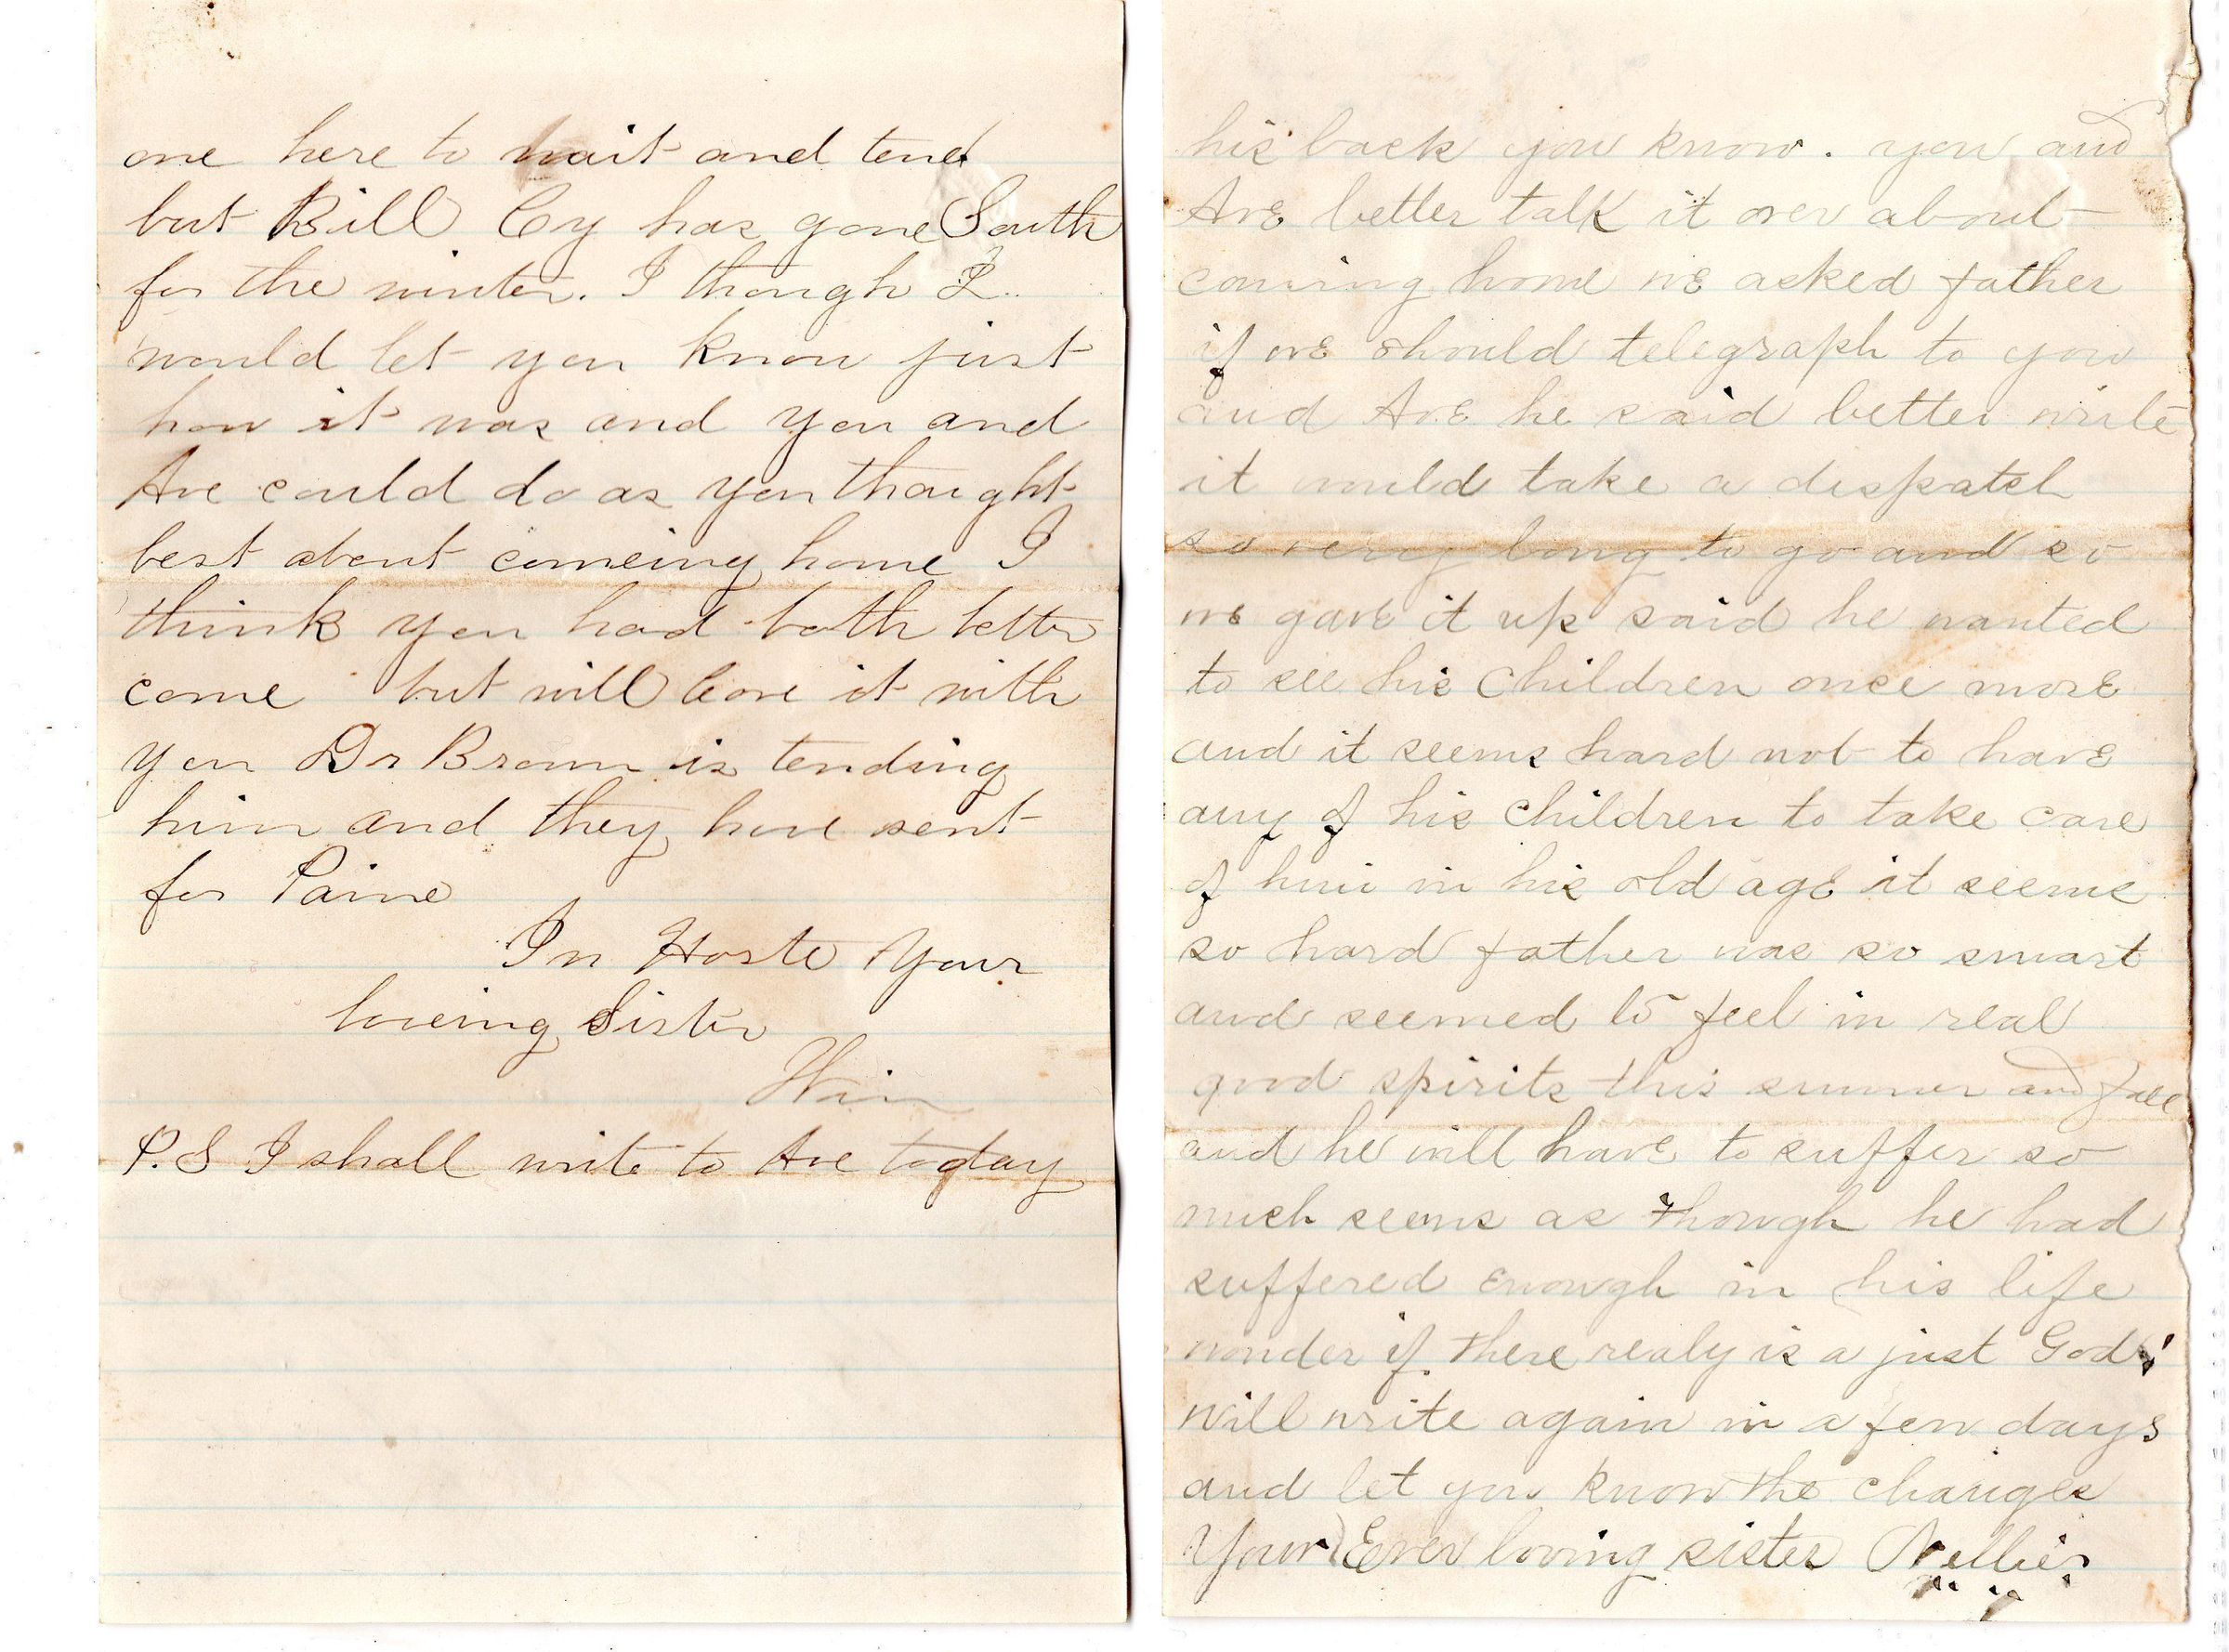 one here to wait and tend
but Bill Cy has gone South
for the winter. I though I
would let you know just
how it was and you and
Ave could do as you thought
best about comeing home I
think you had both better
come but will leave it with
you Dr Brown is tending
him and they have sent
for Paine
In Haste Your
loveing Sister
Win
P.S I shall write to Ave today
his back you know. you and
Ave better talk it over about
coming home we asked father
if we should telegraph to you
and Ave he said better write
it would take a dispatch
so very long to go and so
we gave it up said he wanted
to see his children once more
and it seems hard not to have
any of his children to take care
of him in his old age it seems
so hard father was so smart
and seemed to feel in real
good spirits this summer and fall
and he will have to suffer so
much seems as though he had
suffered enough in his life
wonder if there realy is a just God
will write again in a few days
and let you know the changes
Your Ever loving sister Nellie